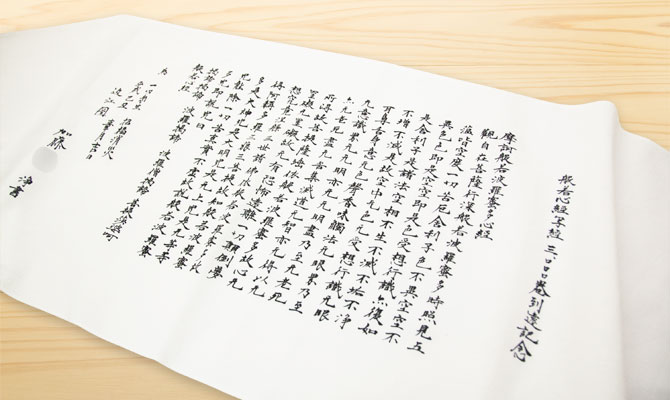 般若心経写経三、〇〇〇巻到達記念
摩訶般若波羅蜜多心経
観自在菩薩行深般若波羅蜜多時照見五
蘊皆空度一切苦厄舎利子色不異空空不
異色色即是空空即是色受想行識亦復如
是舎利子是諸法空相不生不滅不垢不浄
不増不減是故空中无色无受想行識无眼
耳鼻舌身意无色聲香味觸法无眼界乃至
无意識界无无明亦无无明盡乃至无老死
亦无老死盡无苦集滅道无智亦无得以无
所得故菩提薩埵依般若波羅蜜多故心无
罣礙无罣礙故无有恐怖遠離一切顛倒夢
想究竟涅槃三世諸佛依般若波羅蜜多故
得阿耨多羅三藐三菩提故知般若波羅蜜
多是大神呪是大明呪是无上呪是无等等
呪能除一切苦真實不虚故説般若波羅蜜
多呪即説呪曰
羯諦羯諦 波羅羯諦 波羅僧羯諦 菩提薩婆訶
般若心経
為
吉日
加藤 浄書